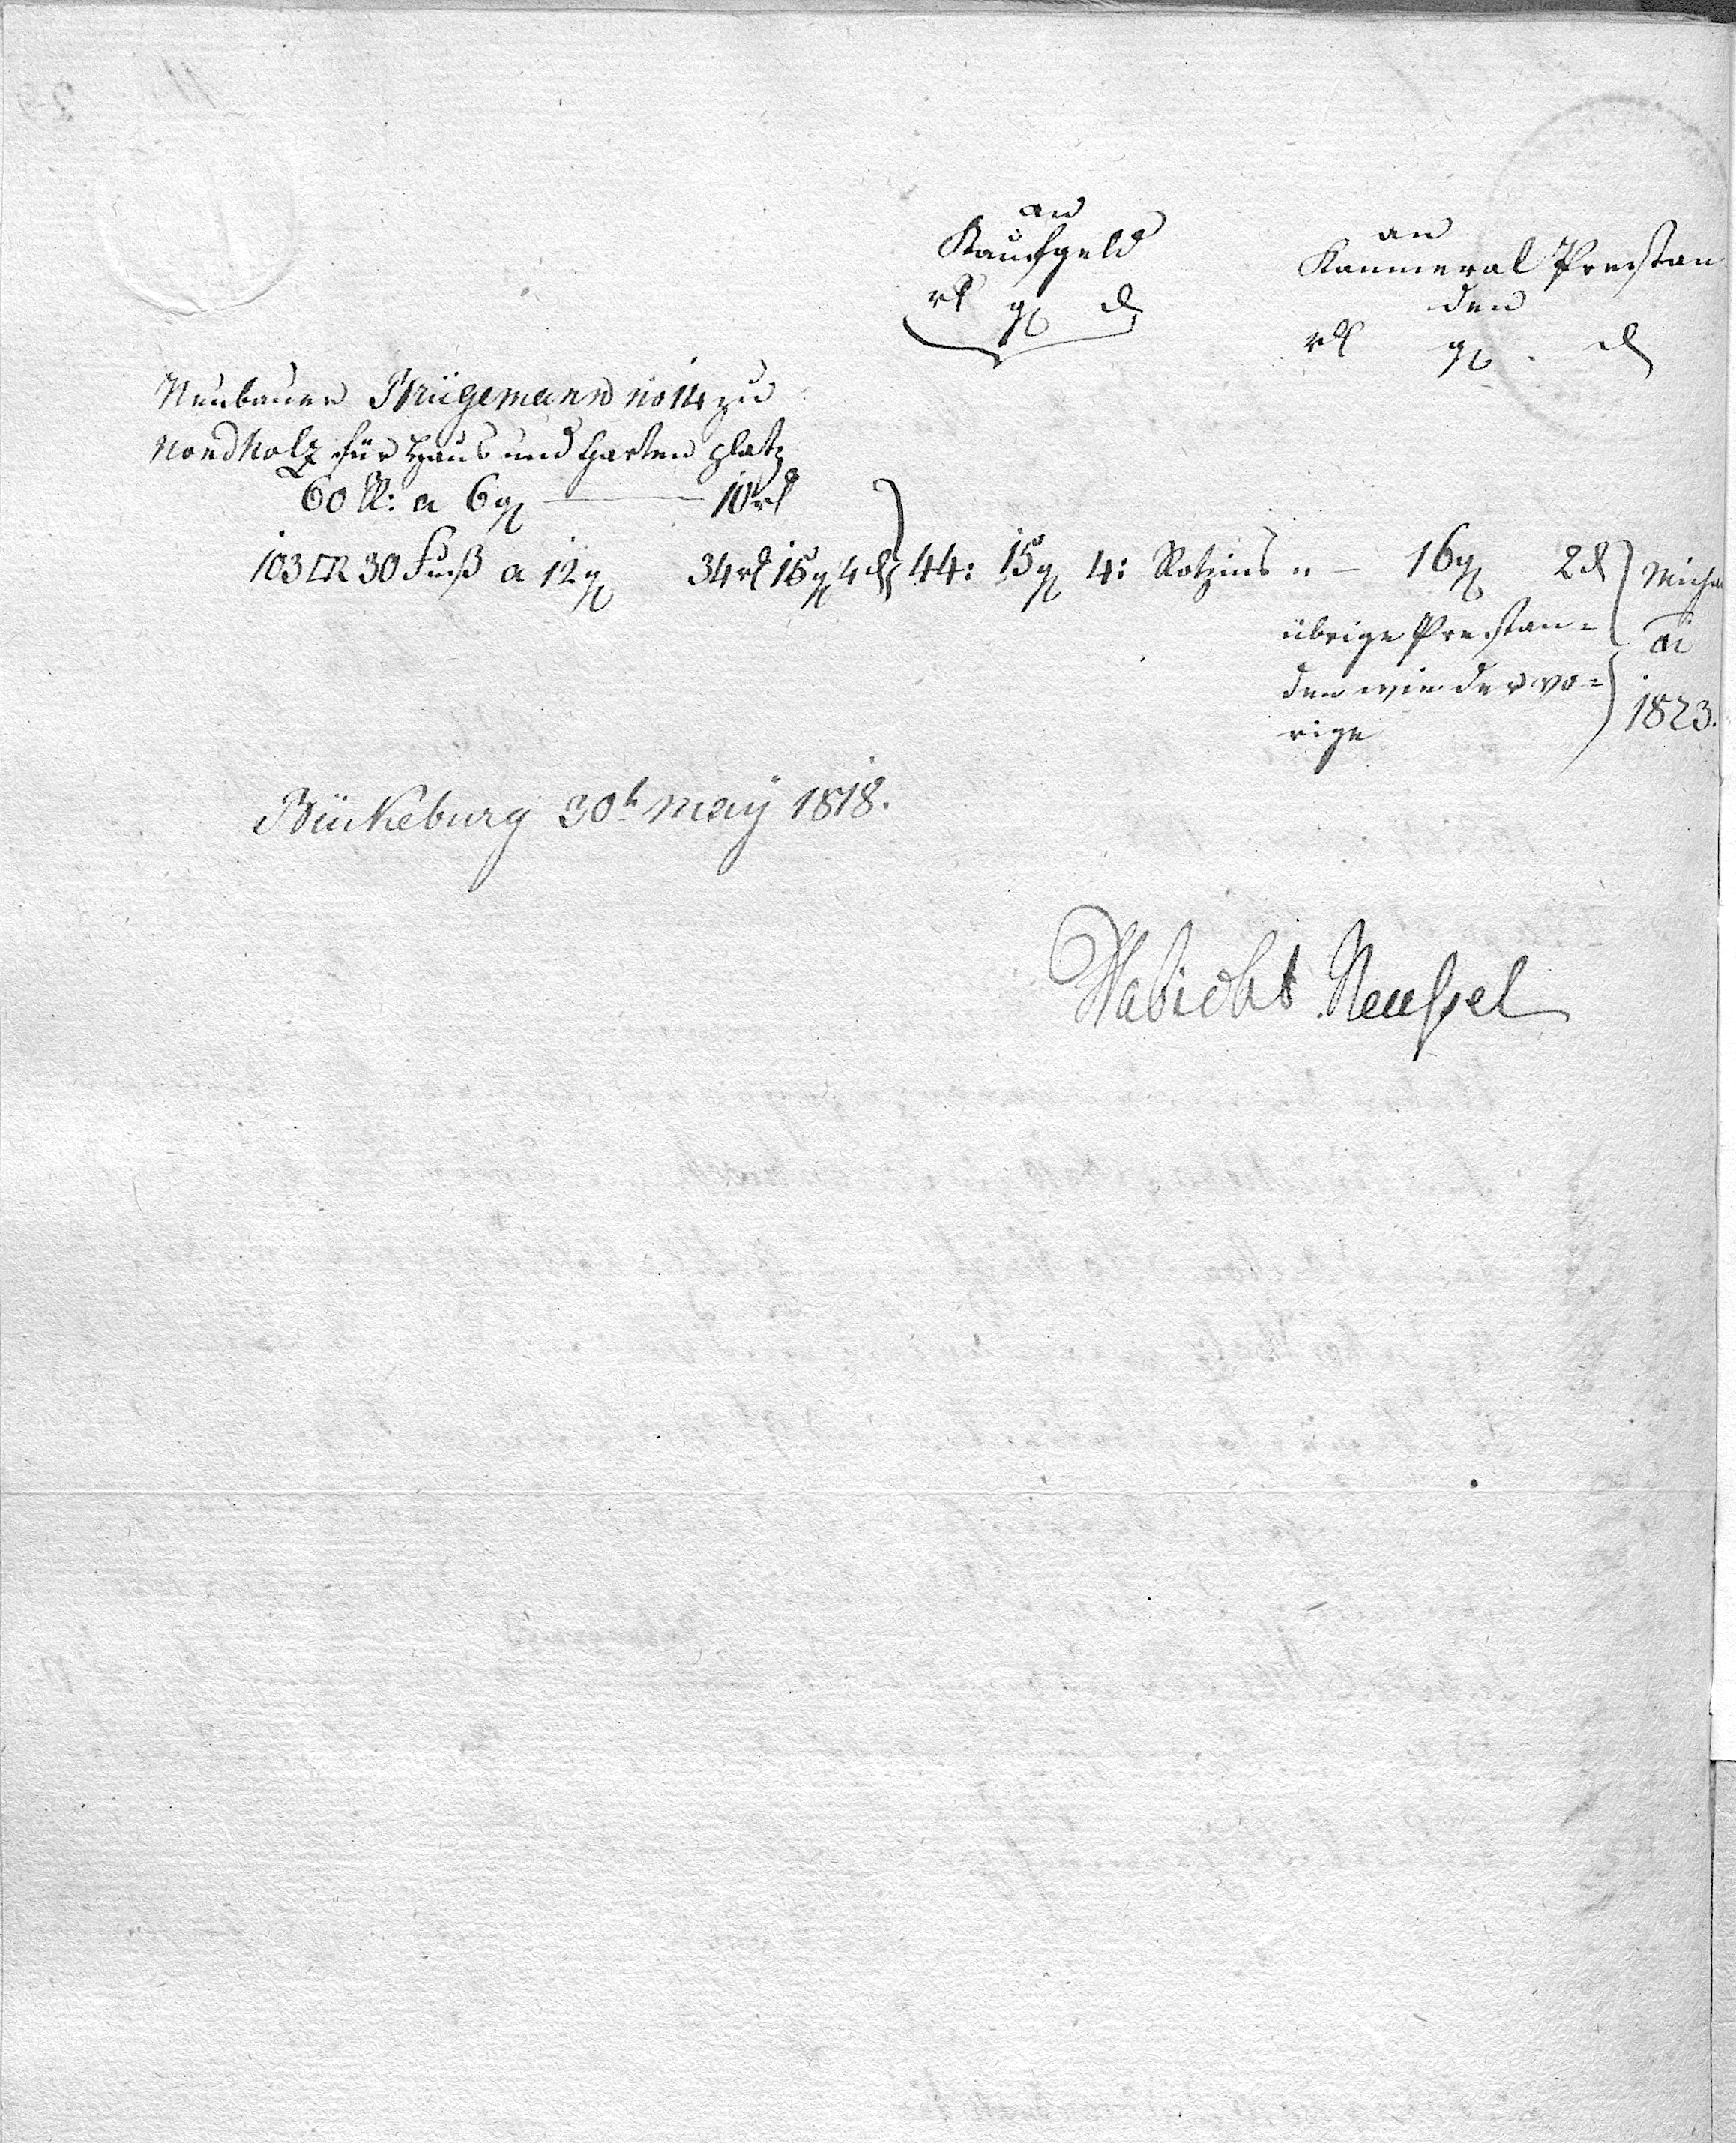 an
Kaufgeld
rl gl d
an
Kammeral Prestan
den
rl gl d
Neubauer Brügemann no 14 zu
Nordholz für Haus und Garten platz
60 R: a 6 gl — 10 rl
103 □R 30 Fuß a 12 gl 34 rl 15 gl 4 d 44: 15 gl 4: Rotzins " — 16 gl 2 d Micha
übrige Prestan=
den wie der vo=
rige
1823.
Bückeburg 30t May 1818.
Habicht Neussel